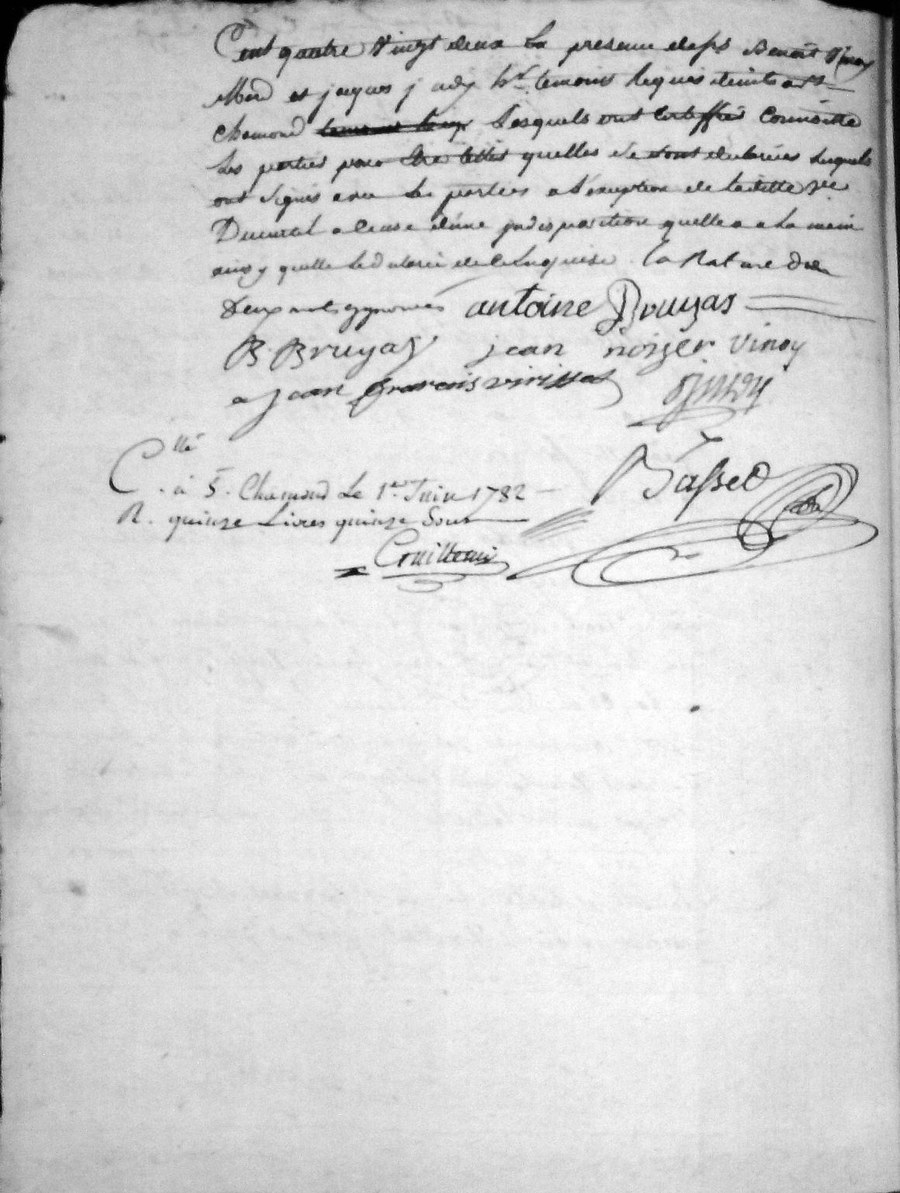 Cent quatre vingt deux En presence de srs Benoit Vinoy
Md et jaques j hr. temoins Requis de St
chamond temoins Lesquels ont Certiffiés Connoitre
Les parties pour être telles quelles se sont declarées Lesquels
ont signés avec les parties a l'exception de ladite ve
a Cause d'une jndisposition quelle a a La main
ainsy quelle Le declaré de Ce Enquise. La Rature de
Deux mots approuvée antoine Bruyas
B Bruyas jean noizer vinoy
a jean francois virissel
Cllé
à St. Chamond Le 1er Juin 1782
R. quinze Livres quinze Sous
Basset